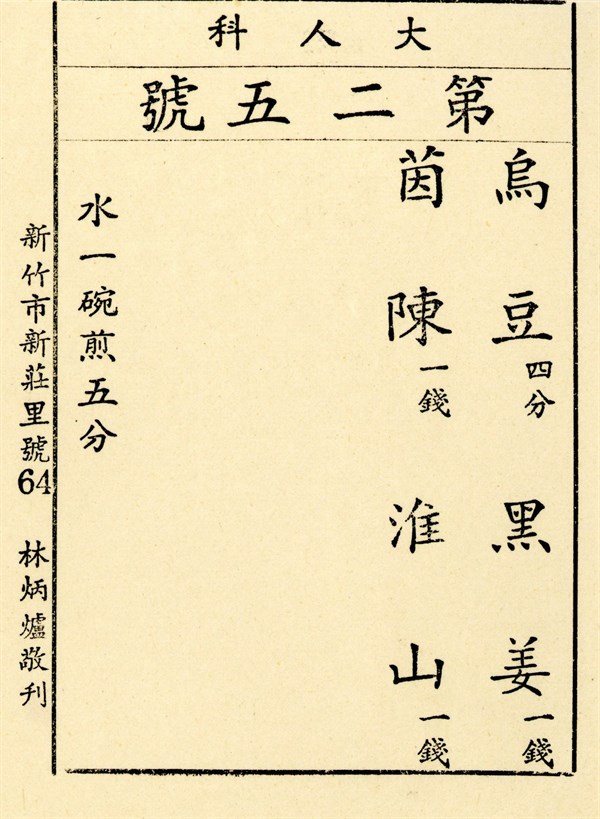 大人科
第二五號
烏豆四分 黑姜一錢
茵陳一錢 淮山一錢
水一碗煎五分
新竹市新莊里號64 林炳爐敬刋